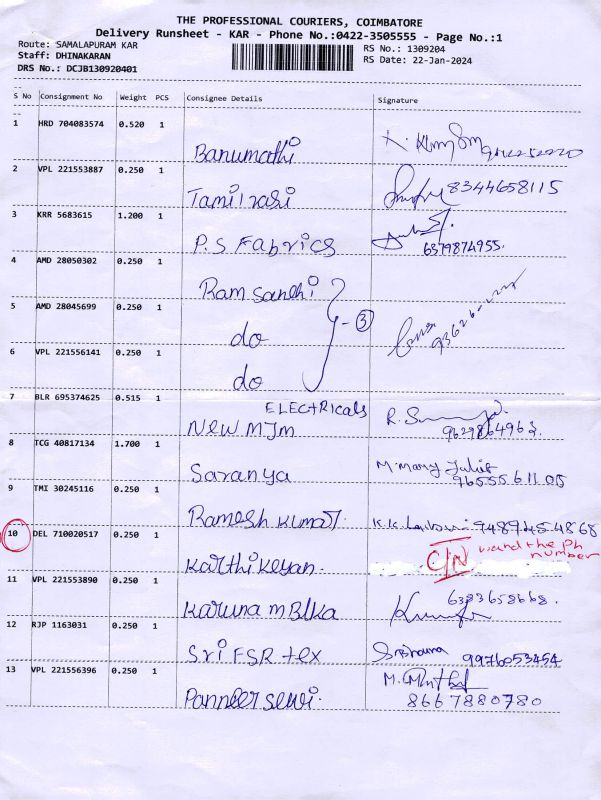 THE PROFESSIONAL COURIERS, COIMBATORE
Delivery Runsheet - KAR - Phone No.:0422-3505555 - Page No.:1
Route: SAMALAPURAM KAR
RS No.: 1309204
Staff: DHINAKARAN
RS Date: 22-Jan-2024
DRS No.: DCJB130920401
S No Consignment No Weight PCS Consignee Details Signature
1 HRD 704083574 0.520 1
Banumathi
2 VPL 221553887 0.250 1
Tamilrasi 8344658115
3 KRR 5683615 1.200 1
P.S Fabrics 6379874955.
4 AMD 28050302 0.250 1
Ram Sandhi
5 AMD 28045699 0.250 1
do - 3
6 VPL 221556141 0.250 1
do
7 BLR 695374625 0.515 1
ELECTRICALS
New MJM
8 TCG 40817134 1.700 1
Saranya M. Mary
9 TMI 30245116 0.250 1
Ramesh Kumar. 9489454868
10 DEL 710020517 0.250 1
Karthikeyan. C/N and the Ph
number
11 VPL 221553890 0.250 1
Karuna mBlka 6383658668.
12 RJP 1163031 0.250 1
Sri FSR tex 9976053454
13 VPL 221556396 0.250 1
Panneer selvi. 8667880780